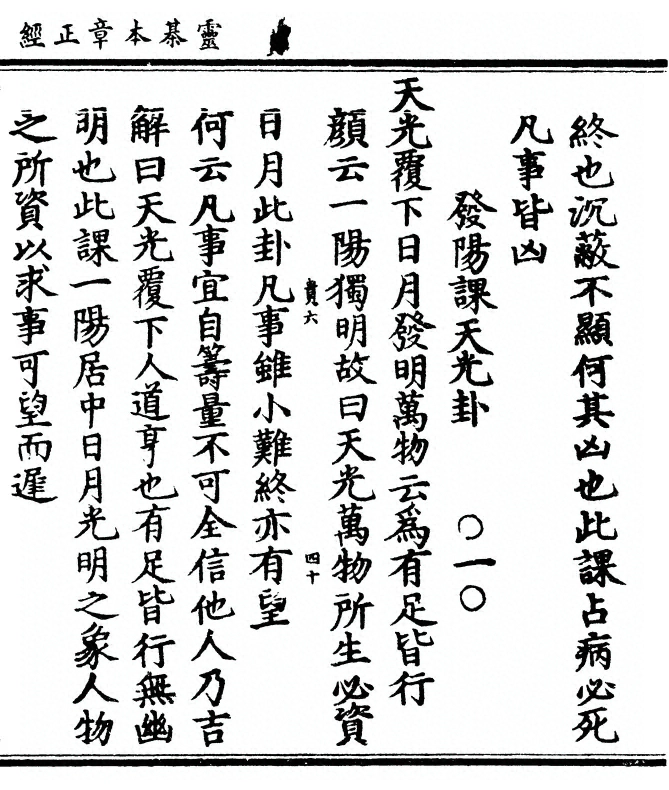 靈棊本章正經
終也沉蔽不顯何其凶也此課占病必死
凡事皆凶
發陽課天光卦 〇一〇
天光覆下日月發明萬物云爲有足皆行
顔云一陽獨明故曰天光萬物所生必資
日月此卦凡事雖小難終亦有望
貴六 四十
何云凡事宜自籌量不可全信他人乃吉
解曰天光覆下人道亨也有足皆行無幽
明也此課一陽居中日月光明之象人物
之所資以求事可望而遲